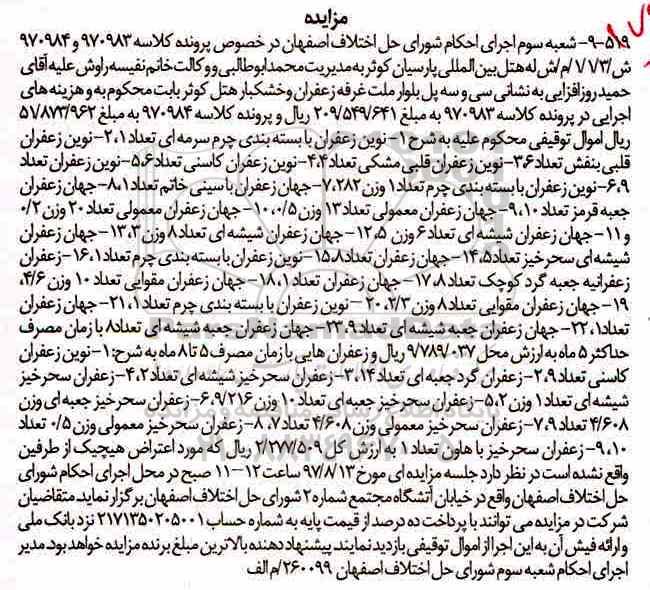 مزایده
۵۱۹-۹- شعبه سوم اجرای احکام شورای حل اختلاف اصفهان در خصوص پرونده کلاسه ۹۷۰۹۸۳ و ۹۷۰۹۸۴
ش/۱/۱/۷۳/م/ش له هتل بین المللی پارسیان کوثر به مدیریت محمد ابوطالبی و وکالت خانم نفیسه راوش علیه آقای
حمید روزافزایی به نشانی سی و سه پل بلوار ملت غرفه زعفران و خشکبار هتل کوثر بابت محکوم به و هزینه های
اجرایی در پرونده کلاسه ۹۷۰۹۸۳ به مبلغ ۲۰۹/۵۴۹/۶۴۱ ریال و پرونده کلاسه ۹۷۰۹۸۴ به مبلغ ۵۱/۸۷۳/۹۶۲
ریال اموال توقیفی محکوم علیه به شرح ۱- نوین زعفران با بسته بندی چرم سرمه ای تعداد ۲،۱- نوین زعفران
قلبی بنفش تعداد ۳،۶- نوین زعفران قلبی مشکی تعداد ۴،۴- نوین زعفران کاسنی تعداد ۵،۶- نوین زعفران تعداد
۶،۹- نوین زعفران با بسته بندی چرم تعداد ۱ وزن ۷،۲۸۲- جهان زعفران با سینی خاتم تعداد ۸،۱- جهان زعفران
جعبه قرمز تعداد ۹،۱۰- جهان زعفران معمولی تعداد ۱۳ وزن ۱۰،۰/۵- جهان زعفران معمولی تعداد ۲۰ وزن ۰/۲
و ۱۱- جهان زعفران شیشه ای تعداد ۶ وزن ۱۲،۵- جهان زعفران شیشه ای تعداد ۸ وزن ۱۳،۳- جهان زعفران
شیشه ای سحرخیز تعداد ۱۴،۵- جهان زعفران تعداد ۱۵،۸- نوین زعفران با بسته بندی چرم تعداد ۱۶،۱- جهان
زعفرانیه جعبه گرد کوچک تعداد ۱۷،۸- جهان زعفران تعداد ۱۸،۱- جهان زعفران مقوایی تعداد ۱۰ وزن ۴/۶،
۱۹- جهان زعفران مقوایی تعداد ۸ وزن ۲۰،۲/۳- نوین زعفران با بسته بندی چرم تعداد ۲۱،۱- جهان زعفران
تعداد ۲۲،۱- جهان زعفران جعبه شیشه ای تعداد ۲۳،۹- جهان زعفران جعبه شیشه ای تعداد ۸ با زمان مصرف
حداکثر ۵ ماه به ارزش محل ۹/۷۸۹/۰۳۷ ریال و زعفران هایی با زمان مصرف ۵ تا ۸ ماه به شرح: ۱- نوین زعفران
کاسنی تعداد ۲،۹- زعفران گرد جعبه ای تعداد ۳،۱۴- زعفران سحرخیز شیشه ای تعداد ۴،۲- زعفران سحرخیز
شیشه ای تعداد ۱ وزن ۵،۲- زعفران سحرخیز جعبه ای تعداد ۱۰ وزن ۶،۹/۲۱۶- زعفران سحرخیز جعبه ای وزن
۴/۶۰۸ تعداد ۷،۹- زعفران سحرخیز معمولی وزن ۴/۶۰۸ تعداد ۸،۷- زعفران سحرخیز معمولی وزن ۰/۵ تعداد
۹،۱۰- زعفران سحرخیز با هاون تعداد ۱ به ارزش کل ۲/۲۷۷/۵۰۴ ریال که مورد اعتراض هیچیک از طرفین
واقع نشده است در نظر دارد جلسه مزایده ای مورخ ۹۷/۸/۱۳ ساعت ۱۲-۱۱ صبح در محل اجرای احکام شورای
حل اختلاف اصفهان واقع در خیابان آتشگاه مجتمع شماره ۲ شورای حل اختلاف اصفهان برگزار نماید. متقاضیان
شرکت در مزایده می توانند با پرداخت ده درصد از قیمت پایه به شماره حساب ۲۱۷۱۳۵۰۲۰۵۰۰۱ نزد بانک ملی
و ارائه فیش آن به این اجرا از اموال توقیفی بازدید نمایند پیشنهاد دهنده بالاترین مبلغ برنده مزایده خواهد بود. مدیر
اجرای احکام شعبه سوم شورای حل اختلاف اصفهان ۲۶۰۰۹۹/م الف